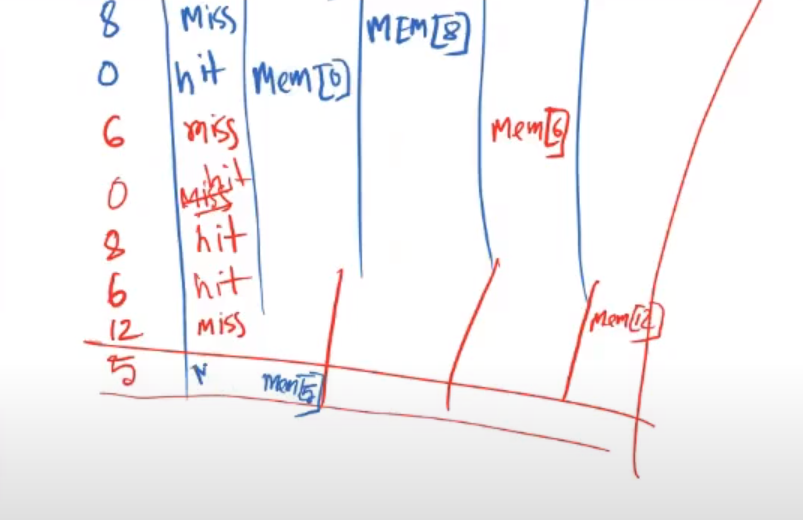 8 Miss MEM[8]
0 hit Mem[0]
6 miss Mem[6]
0 miss hit
8 hit
6 hit
12 miss Mem[12]
5 Mem[5]